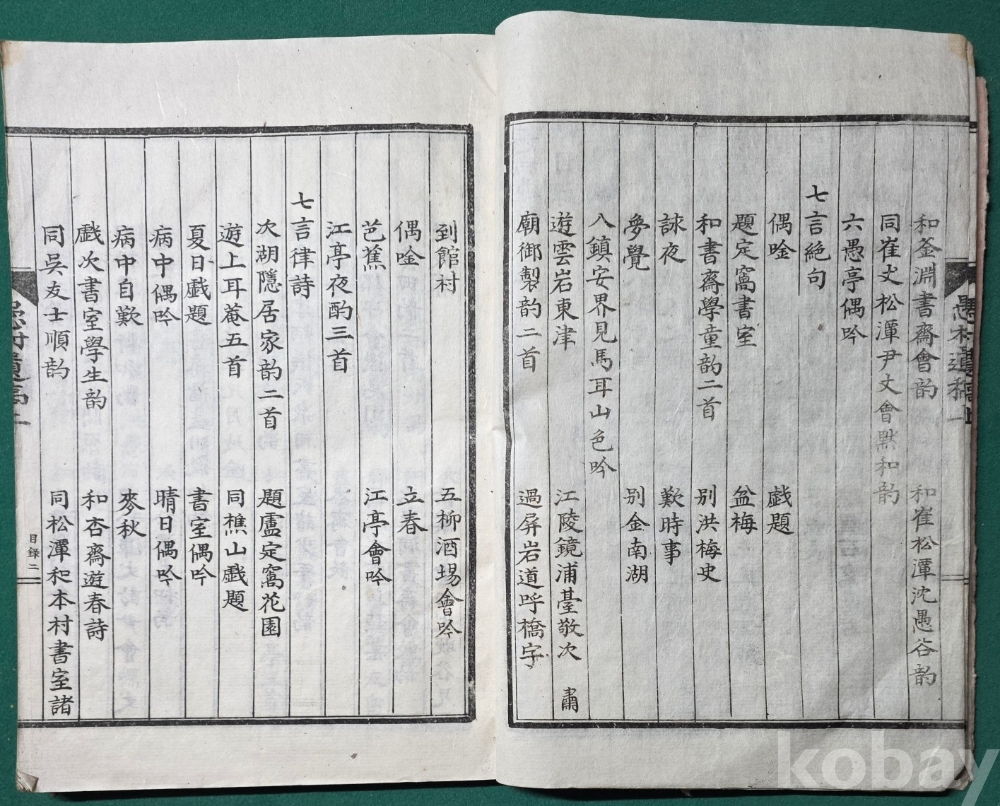 愚村遺稿上 一
和釜淵書齋會韵 和崔松潭沈愚谷韵
同崔丈松潭尹文會默和韵
六愚亭偶吟
七言絶句
偶唫 戱題
題定窩書室 盆梅
和書齋學童韵二首 別洪梅史
詠夜 歎時事
夢覺 別金南湖
八鎭安界見馬耳山色吟
遊雲岩東津 江陵鏡浦臺敬次 肅
廟御製韵二首 過屏岩道呼橋字
到館村 五柳酒場會吟
偶唫 立春
芭蕉 江亭會吟
江亭夜酌三首
七言律詩
次湖隱居家韵二首 題盧定窩花園
遊上耳菴五首 同樵山戱題
夏日戱題 書室偶吟
病中偶吟 晴日偶吟
病中自歎 麥秋
戱次書室學生韵 和杏齋遊春詩
同吳友士順韵 同松潭和本村書室諸
愚村遺稿上
目録二
kobay